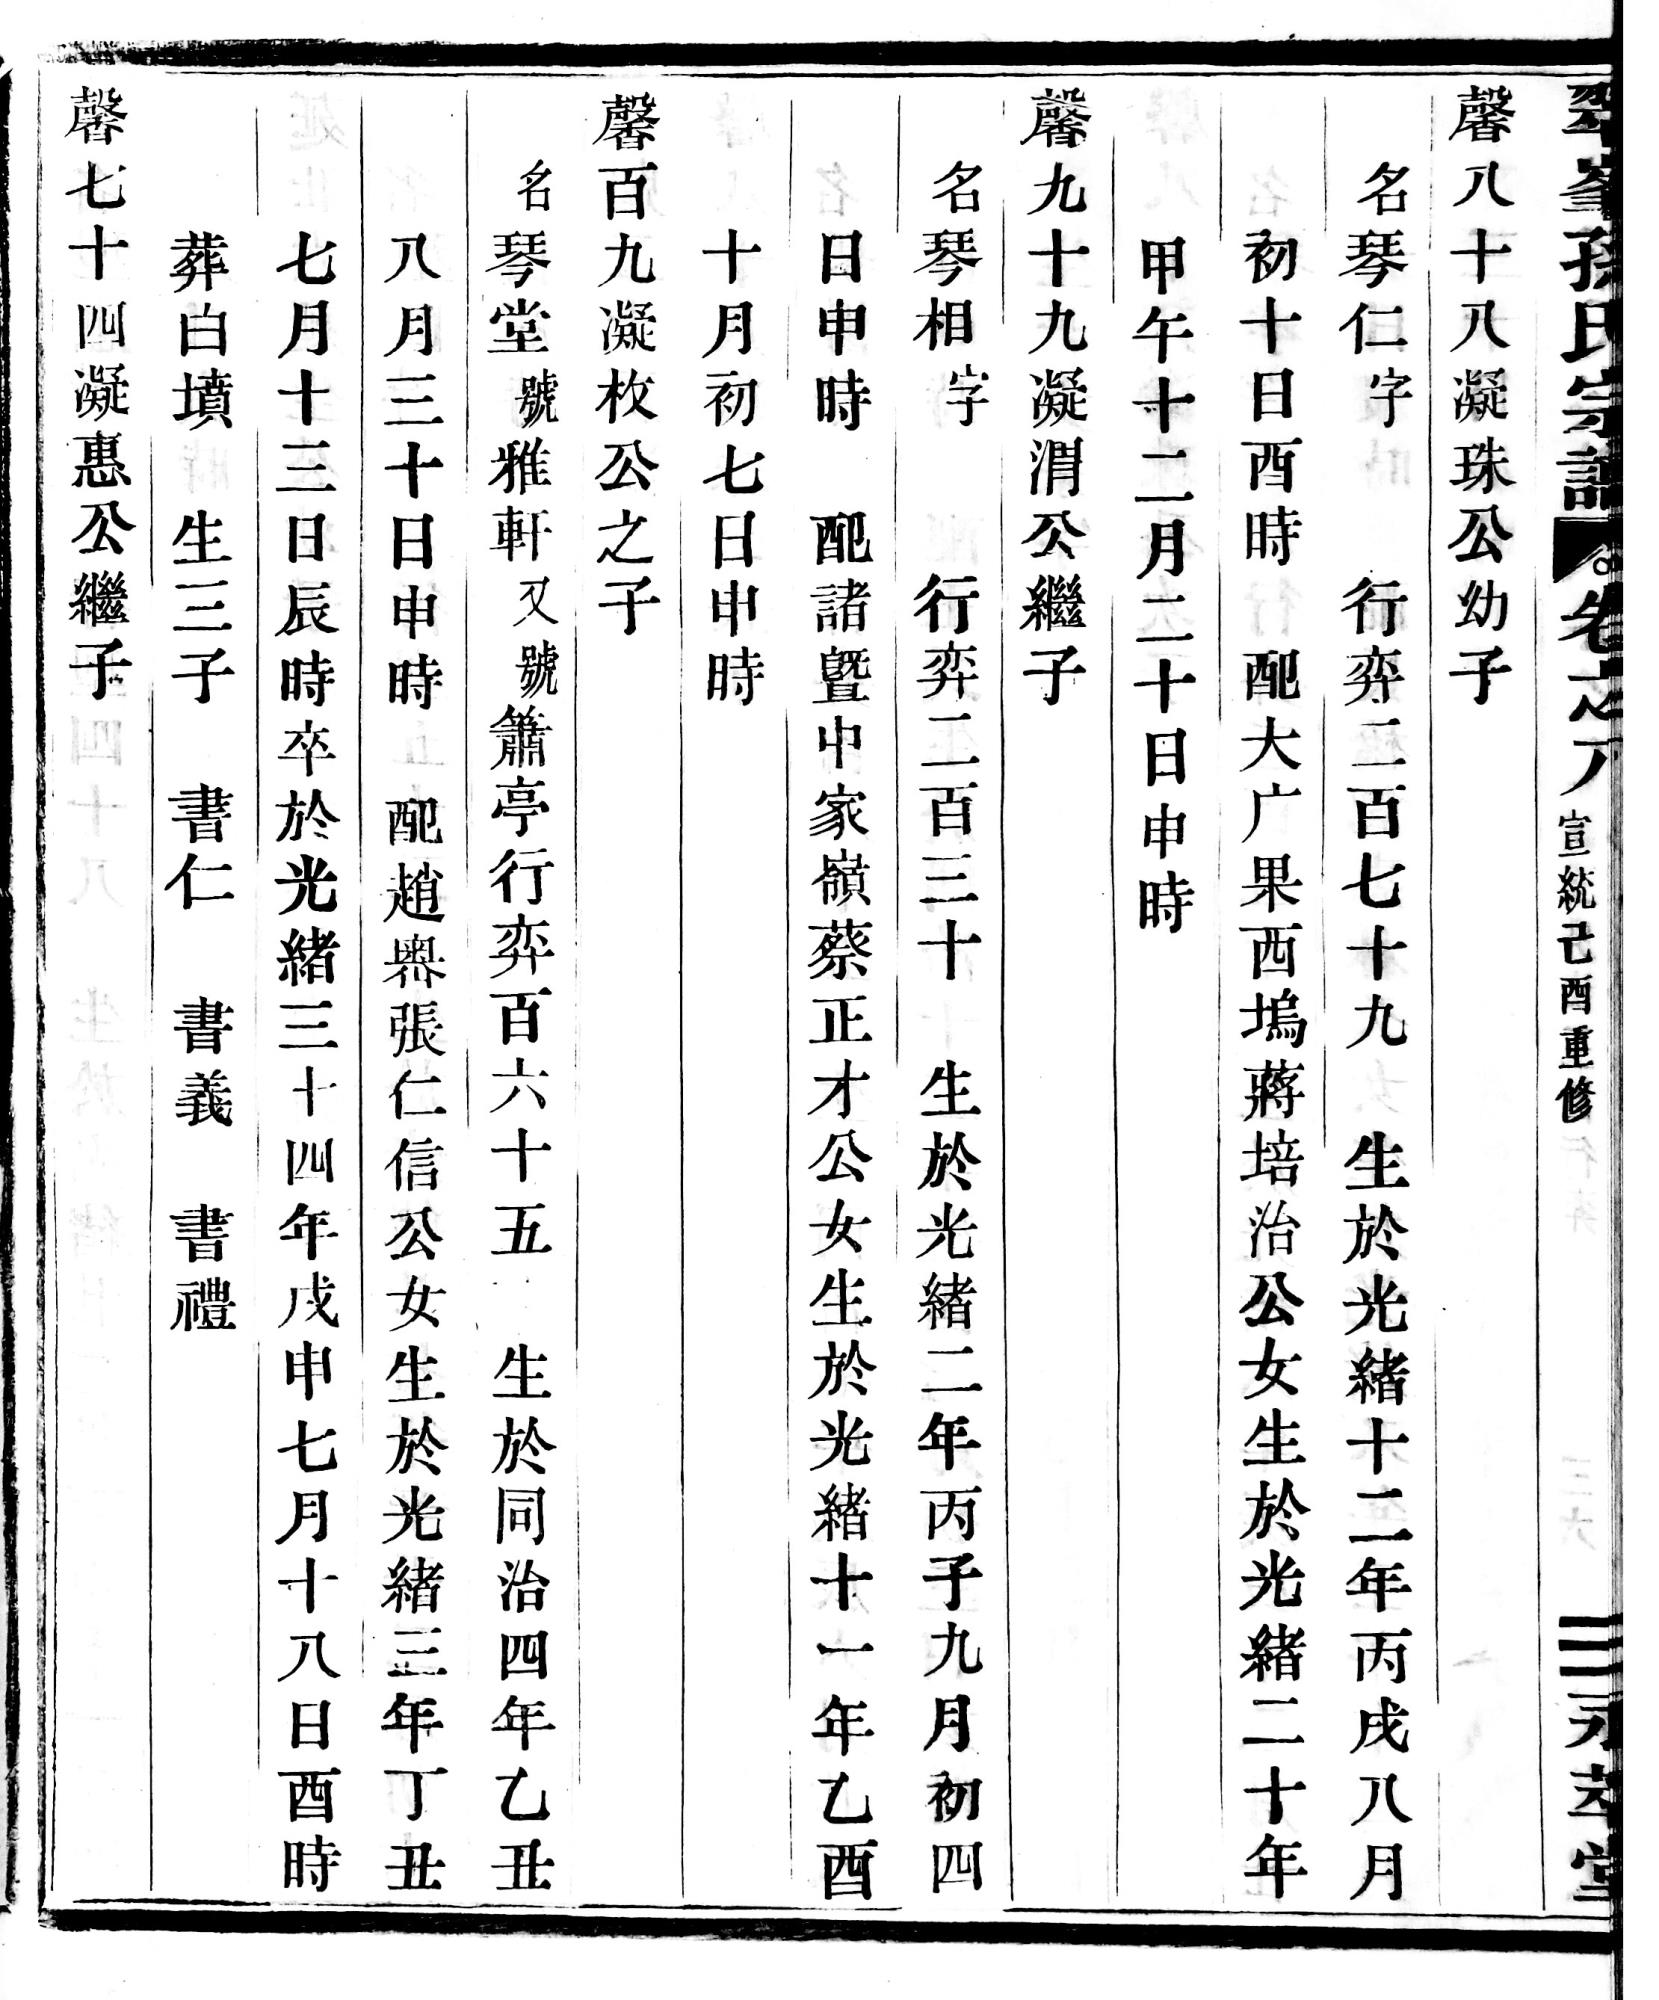 翠峯孫氏宗譜 卷之八 宣統己酉重修 永萃堂
馨八十八凝珠公幼子
名琴仁字 行弈二百七十九 生於光緒十二年丙戌八月
初十日酉時 配大广果西塢蔣培治公女生於光緒二十年
甲午十二月二十日申時
馨九十九凝渭公繼子
名琴相字 行弈二百三十 生於光緒二年丙子九月初四
日申時 配諸暨中家嶺蔡正才公女生於光緒十一年乙酉
十月初七日申時
馨百九凝枚公之子
名琴堂號雅軒又號簫亭行弈百六十五 生於同治四年乙丑
八月三十日申時 配趙嶴張仁信公女生於光緒三年丁丑
七月十三日辰時卒於光緒三十四年戊申七月十八日酉時
葬白墳 生三子 書仁 書義 書禮
馨七十四凝惠公繼子